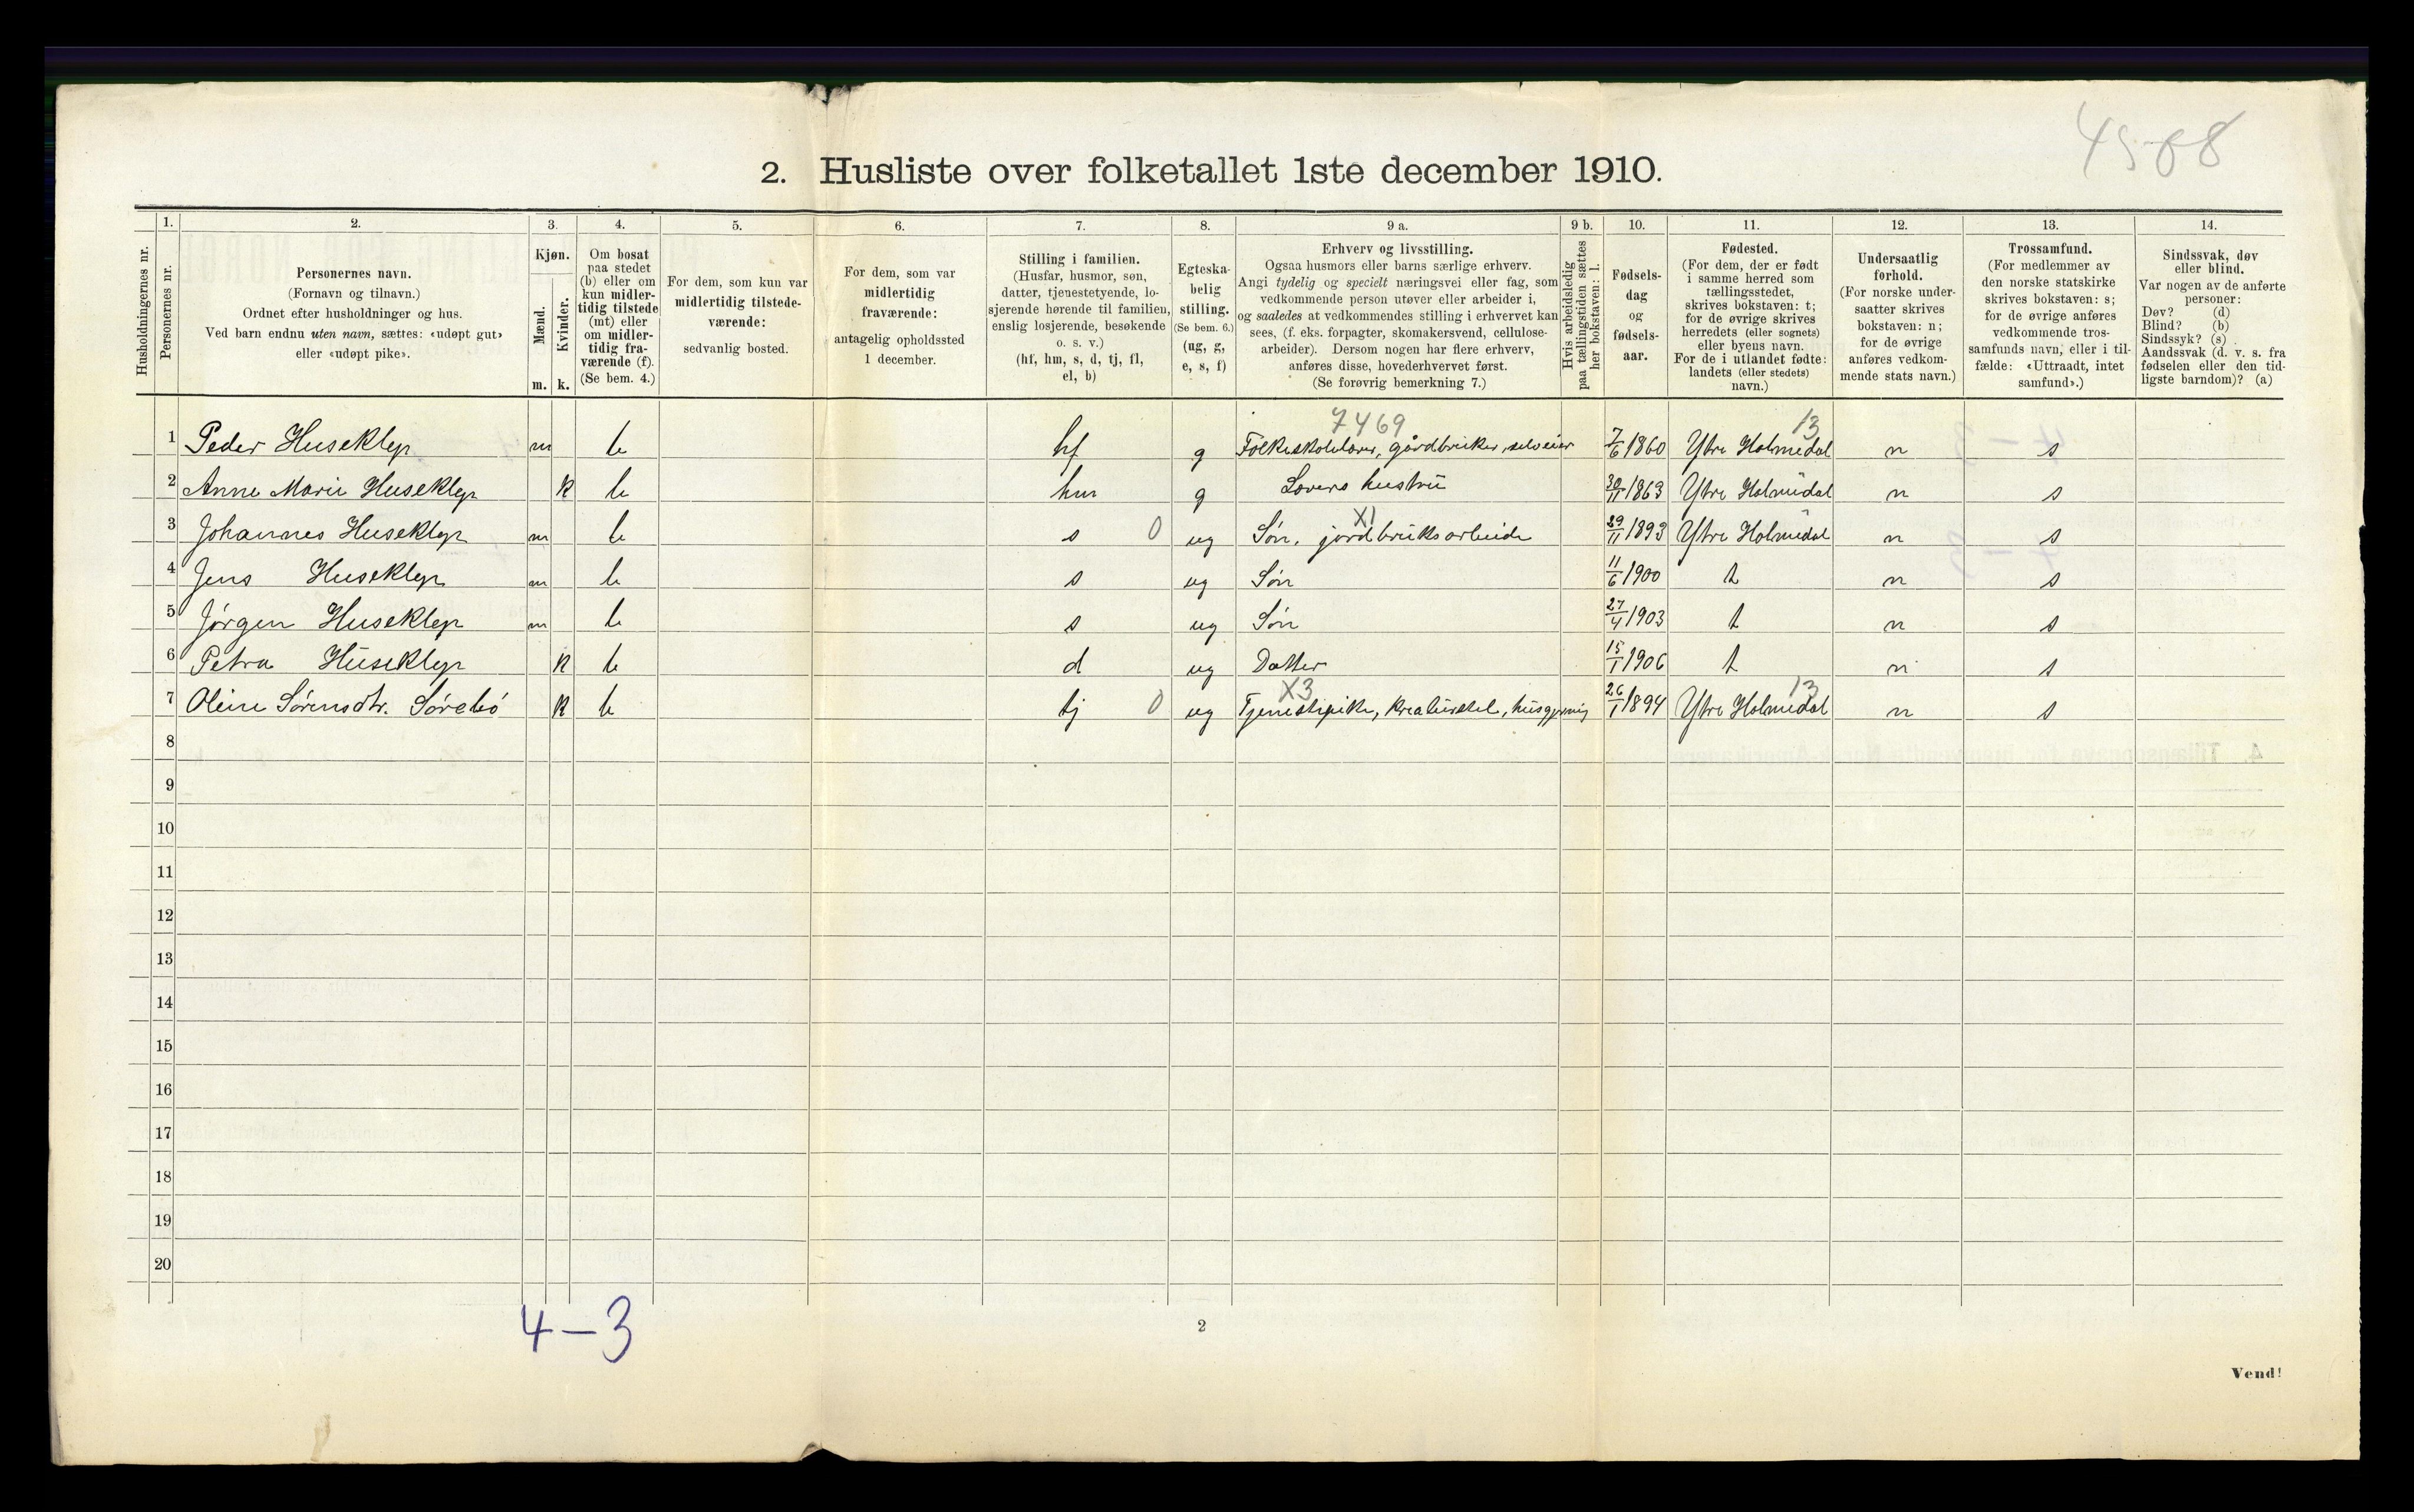 45-68
2. Husliste over folketallet 1ste december 1910.
Husholdningernes nr.
1.
Personernes nr.
2.
Personernes navn.
(Fornavn og tilnavn.)
Ordnet efter husholdninger og hus.
Ved barn endnu uten navn, sættes: «udøpt gut»
eller «udøpt pike».
3.
Kjøn.
Mænd.
Kvinder.
m. k.
4.
Om bosat
paa stedet
(b) eller om
kun midler-
tidig tilstede
(mt) eller
om midler-
tidig fra-
værende (f).
(Se bem. 4.)
5.
For dem, som kun var
midlertidig tilstede-
værende:
sedvanlig bosted.
6.
For dem, som var
midlertidig
fraværende:
antagelig opholdssted
1 december.
7.
Stilling i familien.
(Husfar, husmor, søn,
datter, tjenestetyende, lo-
sjerende hørende til familien,
enslig losjerende, besøkende
o. s. v.)
(hf, hm, s, d, tj, fl,
el, b)
8.
Egteska-
belig
stilling.
(Se bem. 6.)
(ug, g,
e, s, f)
9 a.
Erhverv og livsstilling.
Ogsaa husmors eller barns særlige erhverv.
Angi tydelig og specielt næringsvei eller fag, som
vedkommende person utøver eller arbeider i,
og saaledes at vedkommendes stilling i erhvervet kan
sees, (f. eks. forpagter, skomakersvend, cellulose-
arbeider). Dersom nogen har flere erhverv,
anføres disse, hovederhvervet først.
(Se forøvrig bemerkning 7.)
9 b.
Hvis arbeidsledig
paa tællingstiden sættes
her bokstaven: l.
10.
Fødsels-
dag
og
fødsels-
aar.
11.
Fødested.
(For dem, der er født
i samme herred som
tællingsstedet,
skrives bokstaven: t;
for de øvrige skrives
herredets (eller sognets)
eller byens navn.
For de i utlandet fødte:
landets (eller stedets)
navn.)
12.
Undersaatlig
forhold.
(For norske under-
saatter skrives
bokstaven: n;
for de øvrige
anføres vedkom-
mende stats navn.)
13.
Trossamfund.
(For medlemmer av
den norske statskirke
skrives bokstaven: s;
for de øvrige anføres
vedkommende tros-
samfunds navn, eller i til-
fælde: «Uttraadt, intet
samfund».)
14.
Sindssvak, døv
eller blind.
Var nogen av de anførte
personer:
Døv? (d)
Blind? (b)
Sindssyk? (s)
Aandssvak (d. v. s. fra
fødselen eller den tid-
ligste barndom)? (a)
7469 13
1 Peder Huseklep m b hf g Folkeskolelærer, gårdbruker, selveier 7/6 1860 Ytre Holmedal n s
2 Anne Marie Huseklep k b hm g Lærers hustru 30/11 1863 Ytre Holmedal n s
X1
3 Johannes Huseklep m b s 0 ug Søn, jordbruksarbeide 29/11 1893 Ytre Holmedal n s
4 Jens Huseklep m b s ug Søn 11/6 1900 t n s
5 Jørgen Huseklep m b s ug Søn 27/4 1903 t n s
6 Petra Huseklep k b d ug Datter 15/1 1906 t n s
X3 13
7 Oline Sørensdtr. Sørebø k b tj 0 ug Tjenestepike, kreaturstel, husgjerning 26/1 1894 Ytre Holmedal n s
8
9
10
11
12
13
14
15
16
17
18
19
20
4-3
2
Vend!